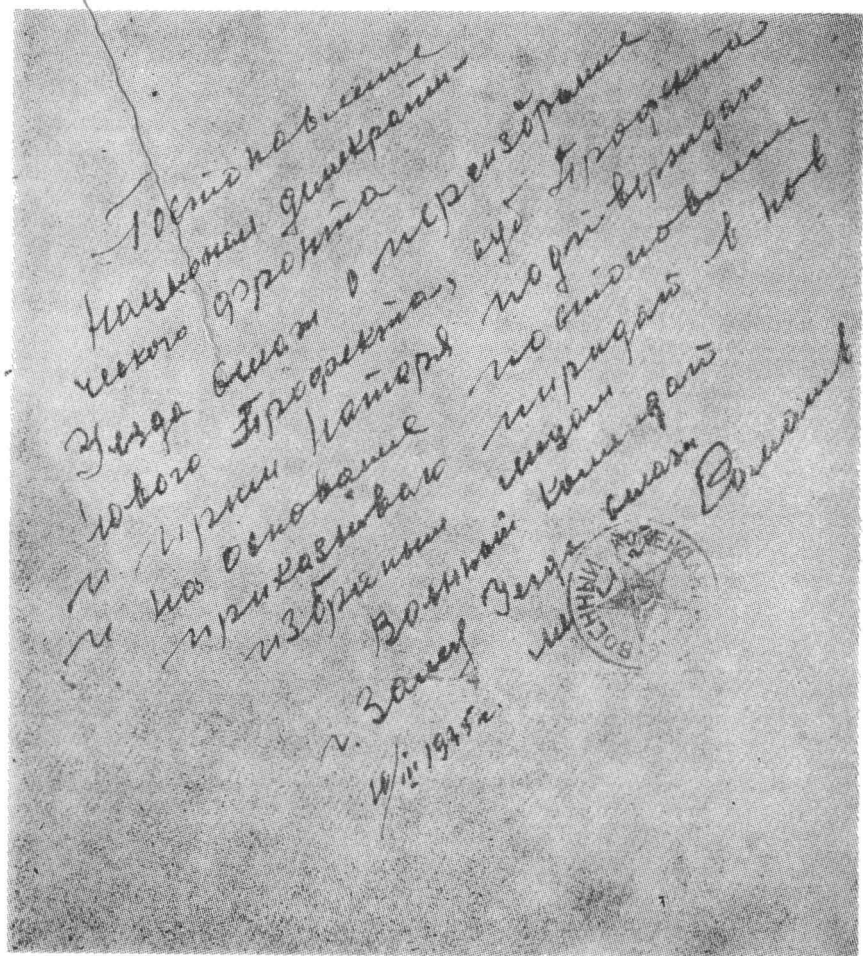 Постоновление
Национал демократи-
ческого фронта
Уезда Силаж о переизбрание
нового Префекта, суб Префекта
и При Натаря подтверждаю
и на основание постоновление
приказываю передат в нов
избраным лицам
Военный комендант
г. Залец Уезда Силаж
10/III 1945г.
ВОЕННЫЙ КОМЕНДАНТ